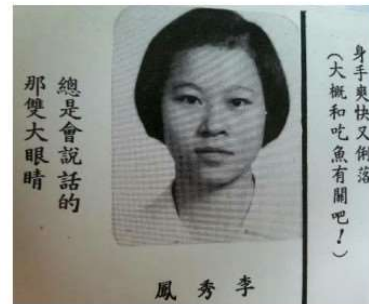 身手爽快又俐落
(大概和吃魚有關吧!)
總是會說話的
那雙大眼睛
李秀鳳